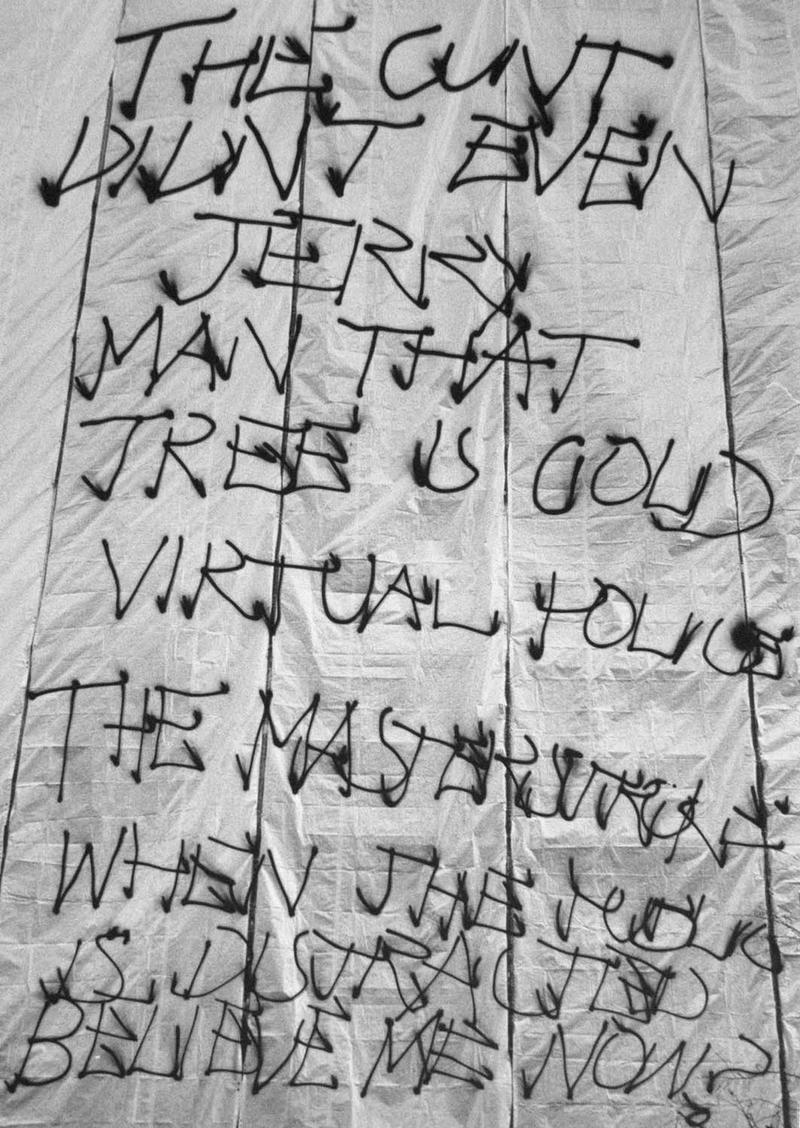 THE CUNT
DIDN'T EVEN
JERRY
MAN THAT
TREE IS GOLD
VIRTUAL POLICE
THE MASTERSTROKE
WHEN THE PUBLIC
IS DISTRACTED
BELIEVE ME NOW?